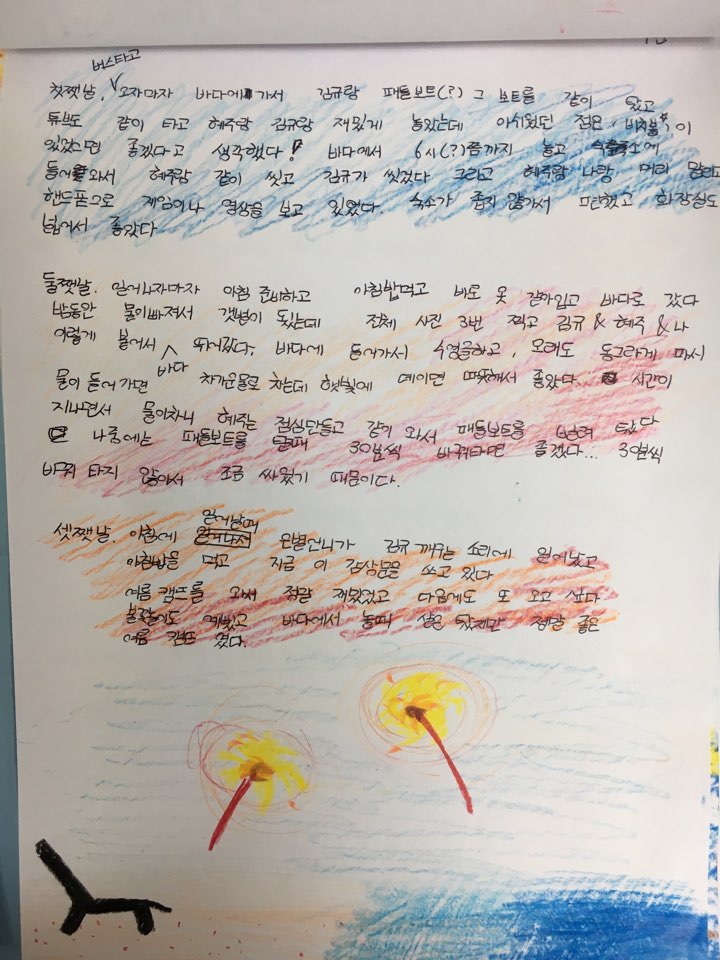 버스타고
첫쨋날. 오자마자 바다에 가서 김규랑 패들보트(?) 그 보트를 같이 탔고
튜브도 같이 타고 혜주랑 김규랑 재밌게 놀았는데 아쉬웠던 점은, 비치볼이
있었으면 좋겠다고 생각했다! 바다에서 6시(?)쯤까지 놀고 숙소에
들어와서 혜주랑 같이 씻고 김규가 씻었다 그리고 혜주랑 나랑 머리 말리고
핸드폰으로 게임이나 영상을 보고 있었다. 숙소가 좁지 않아서 편했고 화장실도
넓어서 좋았다
둘쨋날. 일어나자마자 아침 준비하고 아침밥먹고 바로 옷 갈아입고 바다로 갔다
밤동안 물이빠져서 갯벌이 됬있는데 전체 사진 3번 찍고 김규 & 혜주 & 나
이렇게 붙어서 뛰어갔다. 바다에 들어가서 수영을하고, 모래도 동그랗게 파서
바다
물이 들어가면 차가운물로 차는데 햇빛에 데이면 따뜻해서 좋았다... 시간이
지나면서 물이차니 혜주는 점심만들고 같이 와서 패들보트를 빌려 탔다
나중에는 패들보트를 탈때 30분씩 바꿔타면 좋겠다... 30분씩
바꿔 타지 않아서 조금 싸웠기 때문이다.
일어날때
셋쨋날. 아침에 일어나서 은별언니가 김규 깨우는 소리에 일어났고
아침밥을 먹고 지금 이 감상문을 쓰고 있다
여름 캠프를 와서 정말 재밌었고 다음에도 또 오고 싶다
불꽃놀이도 재밌고 바다에서 놀때 싫은 됬지만 정말 좋은
여름 캠프 였다.